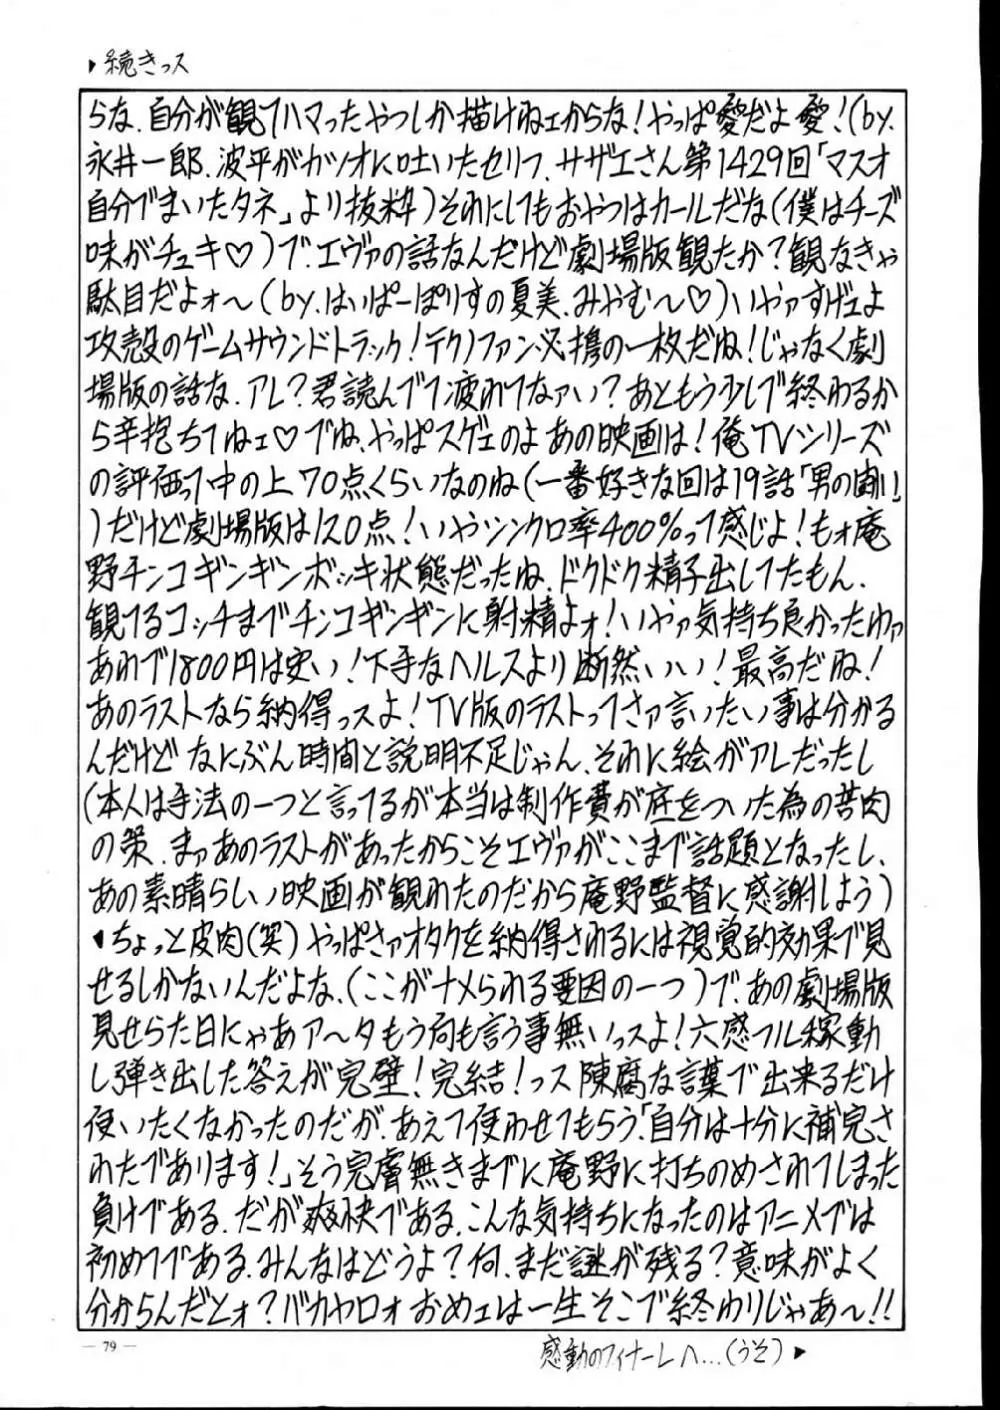 ▶続きっス
らな.自分が観てハマったやつしか描けねェからな！やっぱ愛だよ愛！(by.
永井一郎.波平がカツオに吐いたセリフ.サザエさん第1429回「マスオ
自分でまいたタネ」より抜粋)それにしてもおやつはカールだな(僕はチーズ
味がチュキ♡)で.エヴァの話なんだけど劇場版観たか？観なきゃ
駄目だよォ～(by.はいぱーぽりすの夏美.みやむ～♡)いやァすげェよ
攻殻のゲームサウンドトラック！テクノファン必携の一枚だね！じゃなく劇
場版の話な.アレ？君読んでて疲れてなァい？あともう少しで終わるか
ら辛抱ちてねェ♡でね.やっぱスゲェのよあの映画は！俺TVシリーズ
の評価って中の上70点くらいなのね(一番好きな回は19話「男の闘い」
)だけど劇場版は120点！いやシンクロ率400%って感じよ！もォ庵
野チンコギンギンボッキ状態だったね.ドクドク精子出してたもん.
観てるコッチまでチンコギンギンに射精よォ！いやァ気持ち良かったゆァ
あれで1800円は安い！下手なヘルスより断然いい！最高だね！
あのラストなら納得っスよ！TV版のラストってさァ言いたい事は分かる
んだけどなにぶん時間と説明不足じゃん.それに絵がアレだったし
(本人は手法の一つと言ってるが本当は制作費が底をついた為の苦肉
の策.まァあのラストがあったからこそエヴァがここまで話題となったし、
あの素晴らしい映画が観れたのだから庵野監督に感謝しよう)
◀ちょっと皮肉(笑)やっぱさァオタクを納得されるには視覚的効果で見
せるしかないんだよな.(ここがナメられる要因の一つ)で.あの劇場版
見せらた日にゃあア～タもう何も言う事無いっスよ！六感フル稼動
し弾き出した答えが完璧！完結！っス陳腐な言葉で出来るだけ
使いたくなかったのだが.あえて使わせてもらう.「自分は十分に補完さ
れたであります！」そう完膚無きまでに庵野に打ちのめされてしまった
負けである.だが爽快である.こんな気持ちになったのはアニメでは
初めてである.みんなはどうよ？何.まだ謎が残る？意味がよく
分からんだとォ？バカヤロォおめェは一生そこで終わりじゃあ～!!
— 79 —
感動のフィナーレへ…(うそ)▶